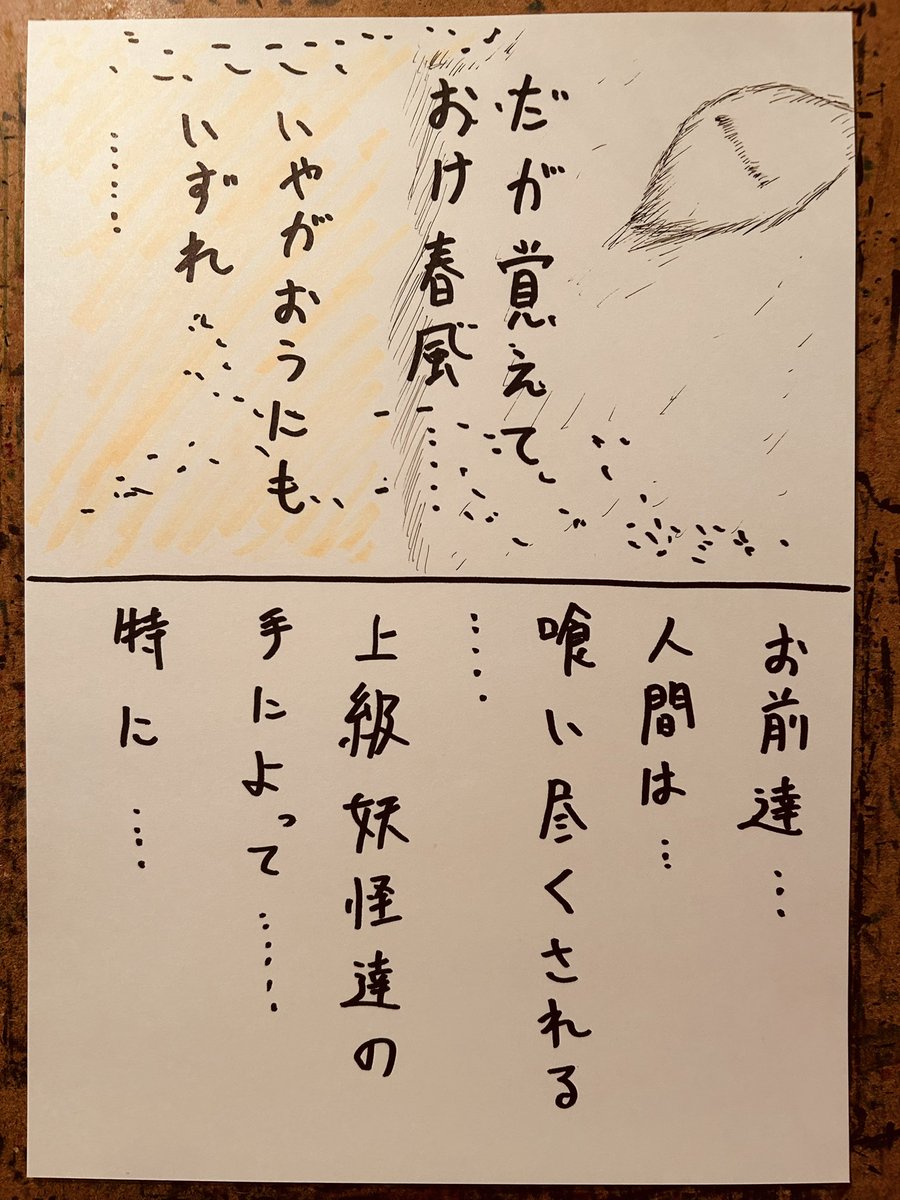 だが覚えて
おけ春風……
いやがおうにも、
いずれ
……
お前達…
人間は…
喰い尽くされる
……
上級妖怪達の
手によって……
特に……